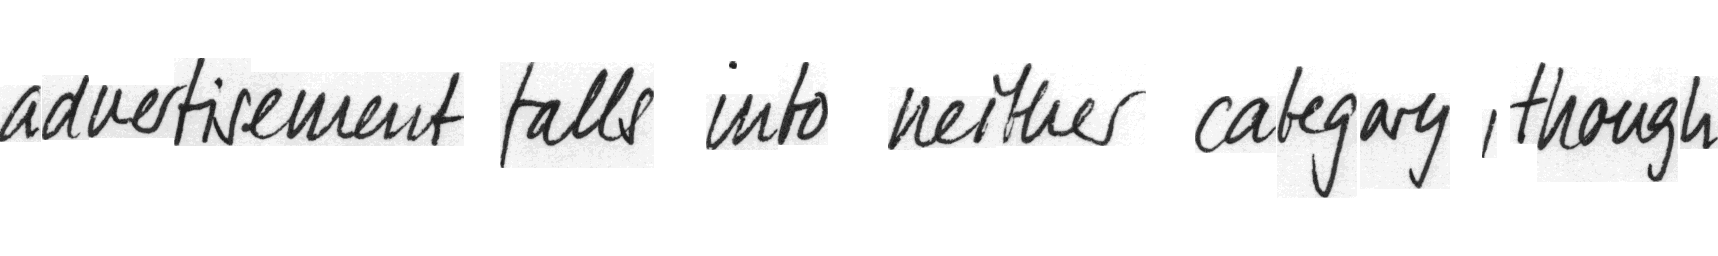 advertisement falls into neither category , though